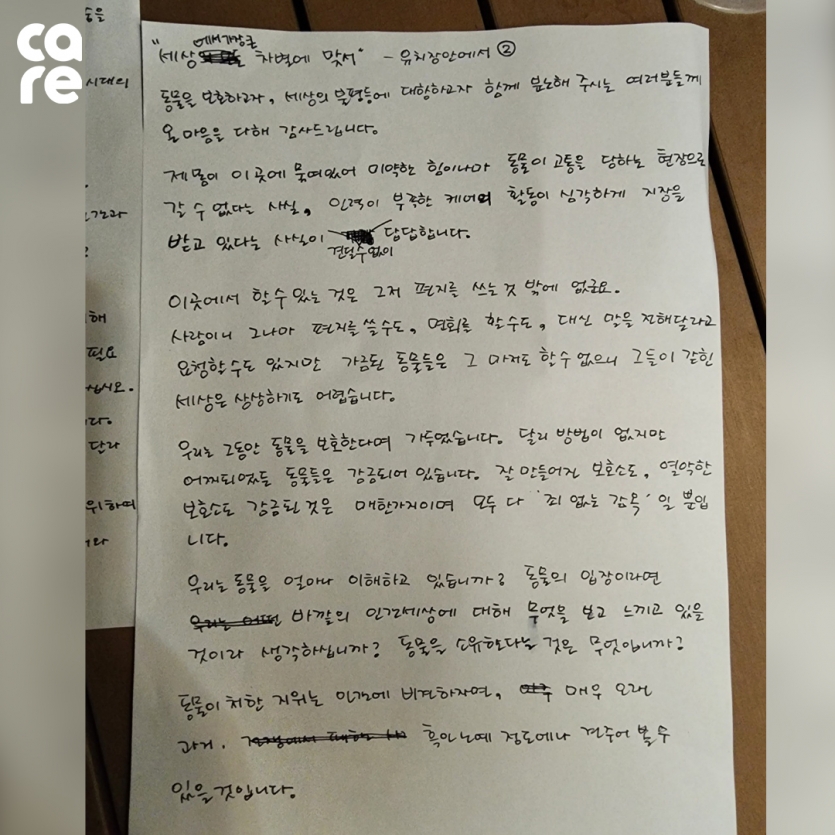 care
"세상에서 가장 큰 차별에 맞서" - 유치장안에서 ②
동물을 보호하고자, 세상의 불평등에 대항하고자 함께 분노해 주시는 여러분들께
온 마음을 다해 감사드립니다.
제 몸이 이 곳에 묶여있어 미약한 힘이나마 동물이 고통을 당하는 현장으로
갈 수 없다는 사실, 인력이 부족한 케어의 활동이 심각하게 지장을
받고 있다는 사실이 견딜수 없이 답답합니다.
이곳에서 할 수 있는 것은 그저 편지를 쓰는 것 밖에 없군요.
사람이니 그나마 편지를 쓸수도, 면회를 할수도, 대신 말을 전해달라고
요청할수도 있지만 감금된 동물들은 그 마저도 할 수 없으니 그들이 갇힌
세상은 상상하기도 어렵습니다.
우리는 그동안 동물을 보호한다며 가두었습니다. 달리 방법이 없지만
어찌되었든 동물들은 감금되어 있습니다. 잘 만들어진 보호소도, 열악한
보호소도 감금된 것은 매한가지이며 모두 다 '죄 없는 감옥' 일 뿐입
니다.
우리는 동물을 얼마나 이해하고 있습니까? 동물의 입장이라면
우리는 어떤 바깥의 인간세상에 대해 무엇을 보고 느끼고 있을
것이라 생각하십니까? 동물을 소유한다는 것은 무엇입니까?
동물이 처한 지위는 인간에 비견하자면, 아주 매우 오랜
과거. 흑인노예 정도에나 견주어 볼 수
있을 것입니다.
시대의
해
필요
십시오.
다.
달라
위하여